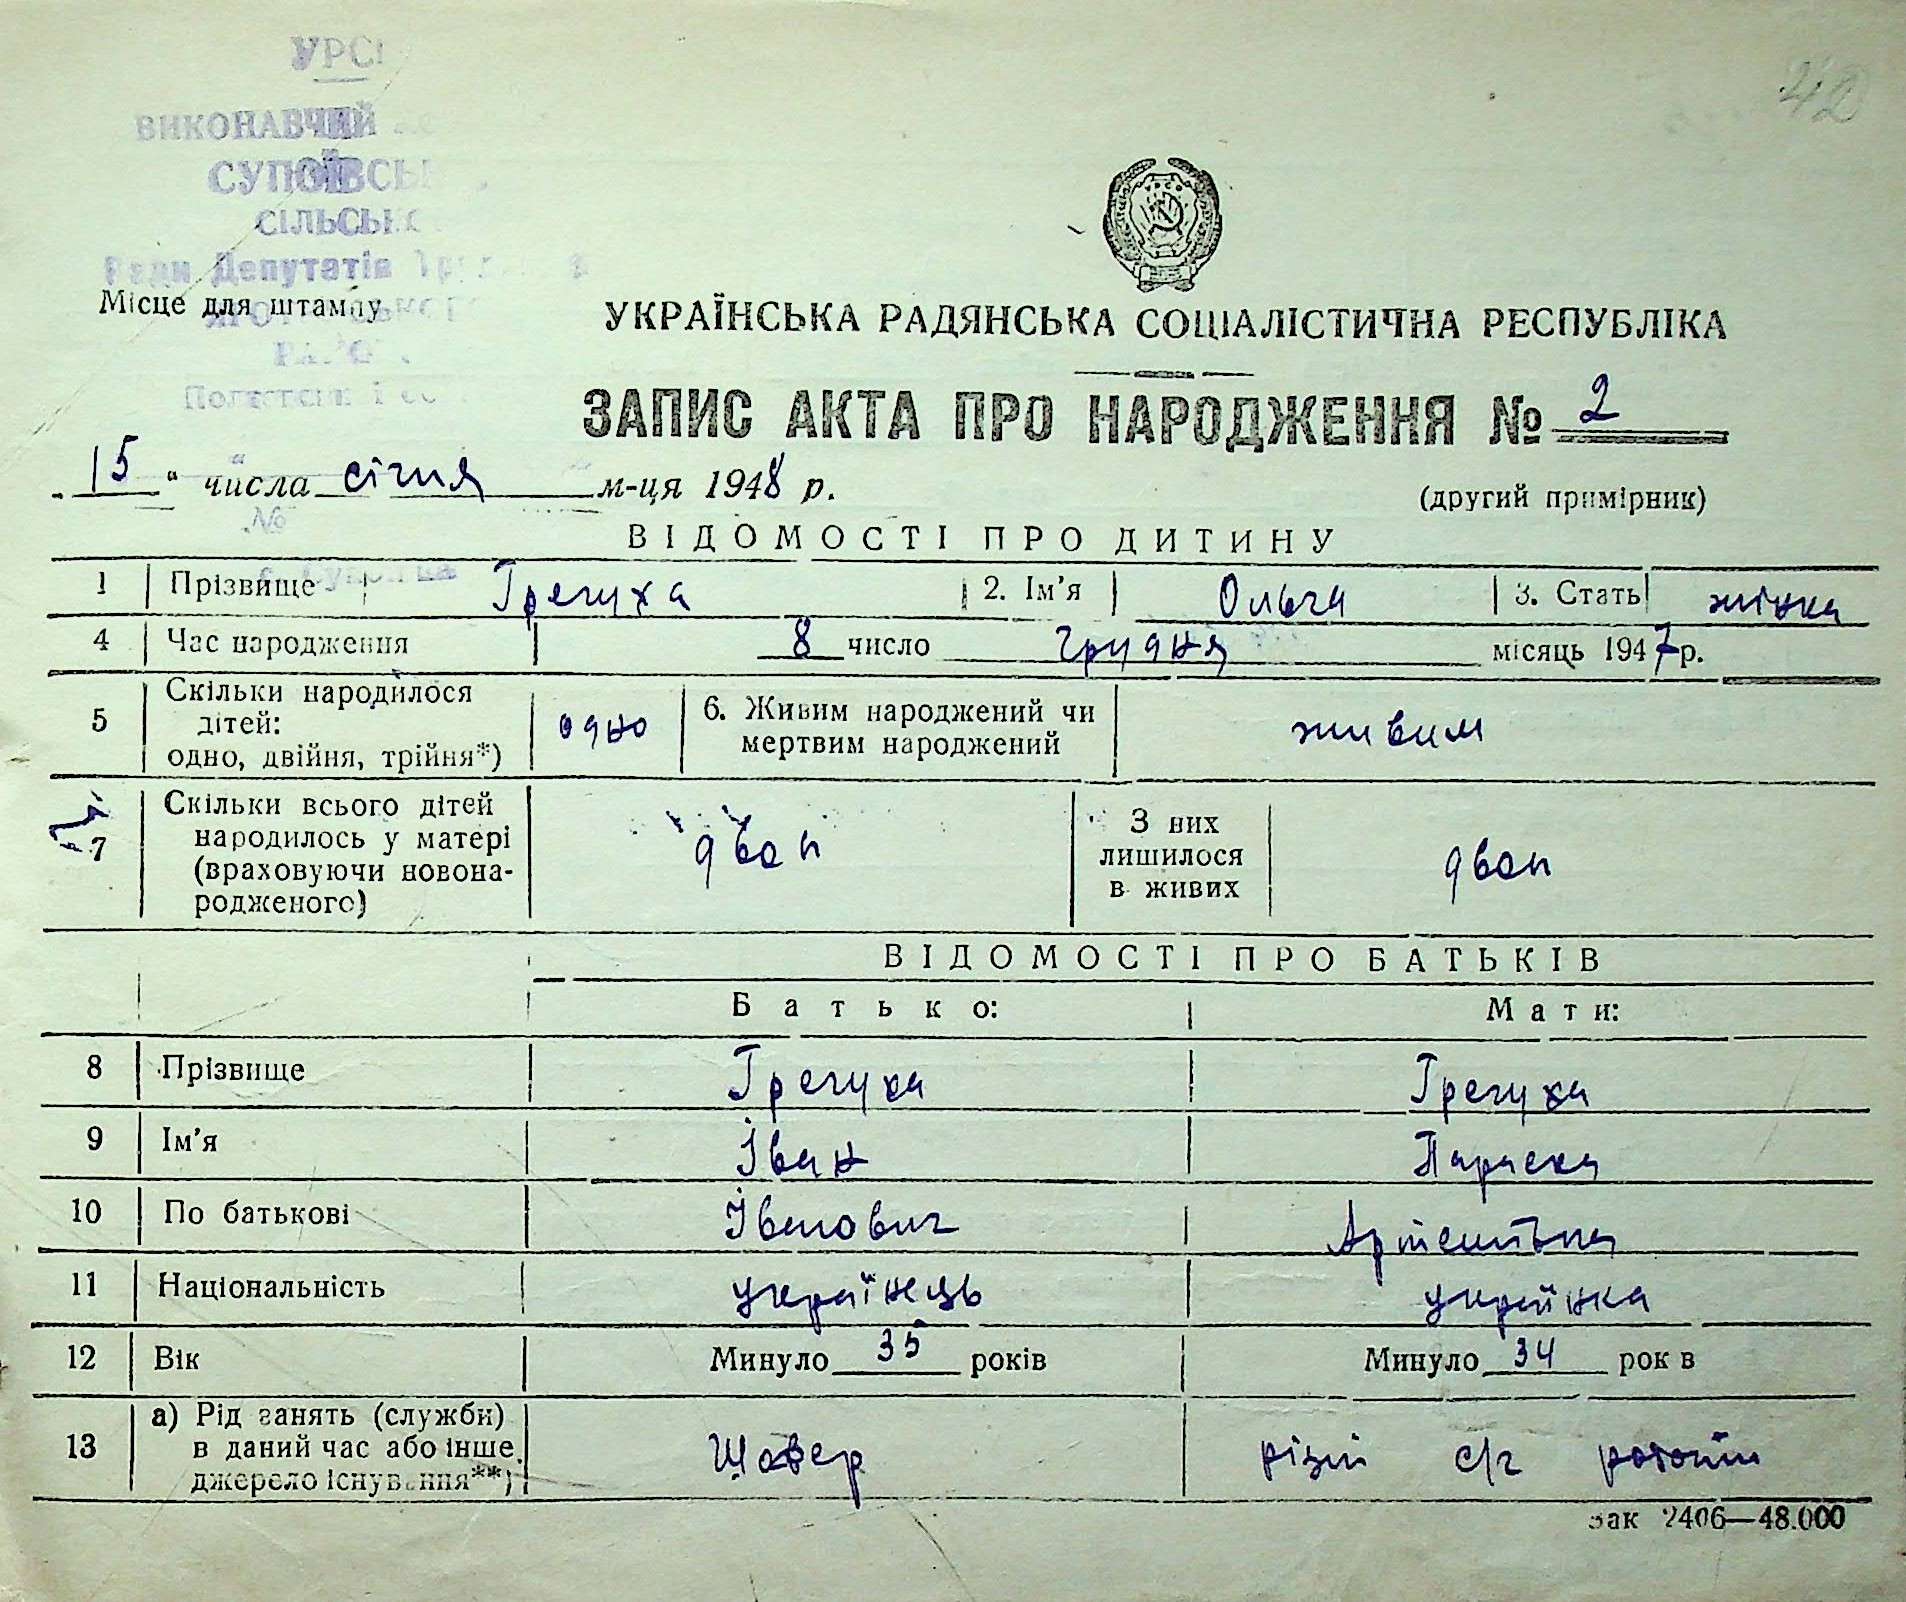 УРСР
42
ВИКОНАВЧИЙ
СУПОЇВСЬК
СІЛЬСЬКО
Ради Депутатів
Місце для штампу
УРСР
УКРАЇНСЬКА РАДЯНСЬКА СОЦІАЛІСТИЧНА РЕСПУБЛІКА
ЗАПИС АКТА ПРО НАРОДЖЕННЯ № 2
„15“ числа січня м-ця 1948 р.
(другий примірник)
№
ВІДОМОСТІ ПРО ДИТИНУ
1 Прізвище Грегуха 2. Ім'я Ольга 3. Стать жінка
4 Час народження 8 число грудня місяць 1947 р.
5 Скільки народилося дітей: одно, двійня, трійня*) одно 6. Живим народжений чи мертвим народжений живим
7 Скільки всього дітей народилось у матері (враховуючи новонародженого) двоє З них лишилося в живих двоє
ВІДОМОСТІ ПРО БАТЬКІВ
Батько: Мати:
8 Прізвище Грегуха Грегуха
9 Ім'я Іван Параска
10 По батькові Іванович Артемівна
11 Національність українець українка
12 Вік Минуло 35 років Минуло 34 рок в
13 а) Рід занять (служби) в даний час або інше джерело існування**) Шофер різні с/г роботи
Зак 2406—48.000